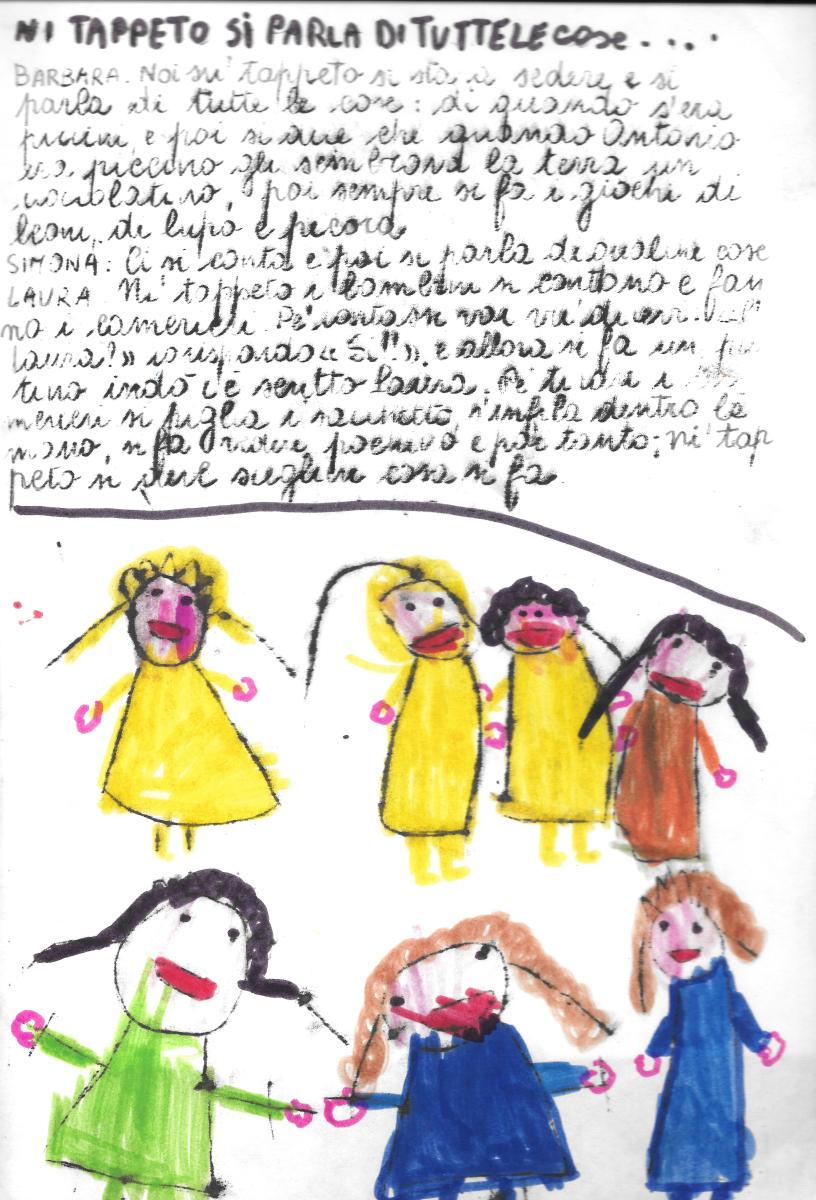 NI TAPPETO SI PARLA DI TUTTE LE COSE....
BARBARA. Noi su' tappeto si sta a sedere e si
parla di tutte le cose: di quando s'era
piccini, e poi si dice che quando Antonio
era piccino gli sembrava la terra un
cioccolatino, poi sempre si fa i giochi di
leoni, di lupo e pecora
SIMONA: Ci si conta e poi si parla di qualche cosa
LAURA. Ni' tappeto i bambini si contano e fan
no i camerieri. Pe' contassi
Laura?» io rispondo « Si!!», e allora si fa un
tino indò c'è scritto Laura. Pe'
merieri si piglia i sacchetto, s'infila dentro la
mano, si fa e poi tanto; ni' tap
peto si deve scegliere cosa si fa